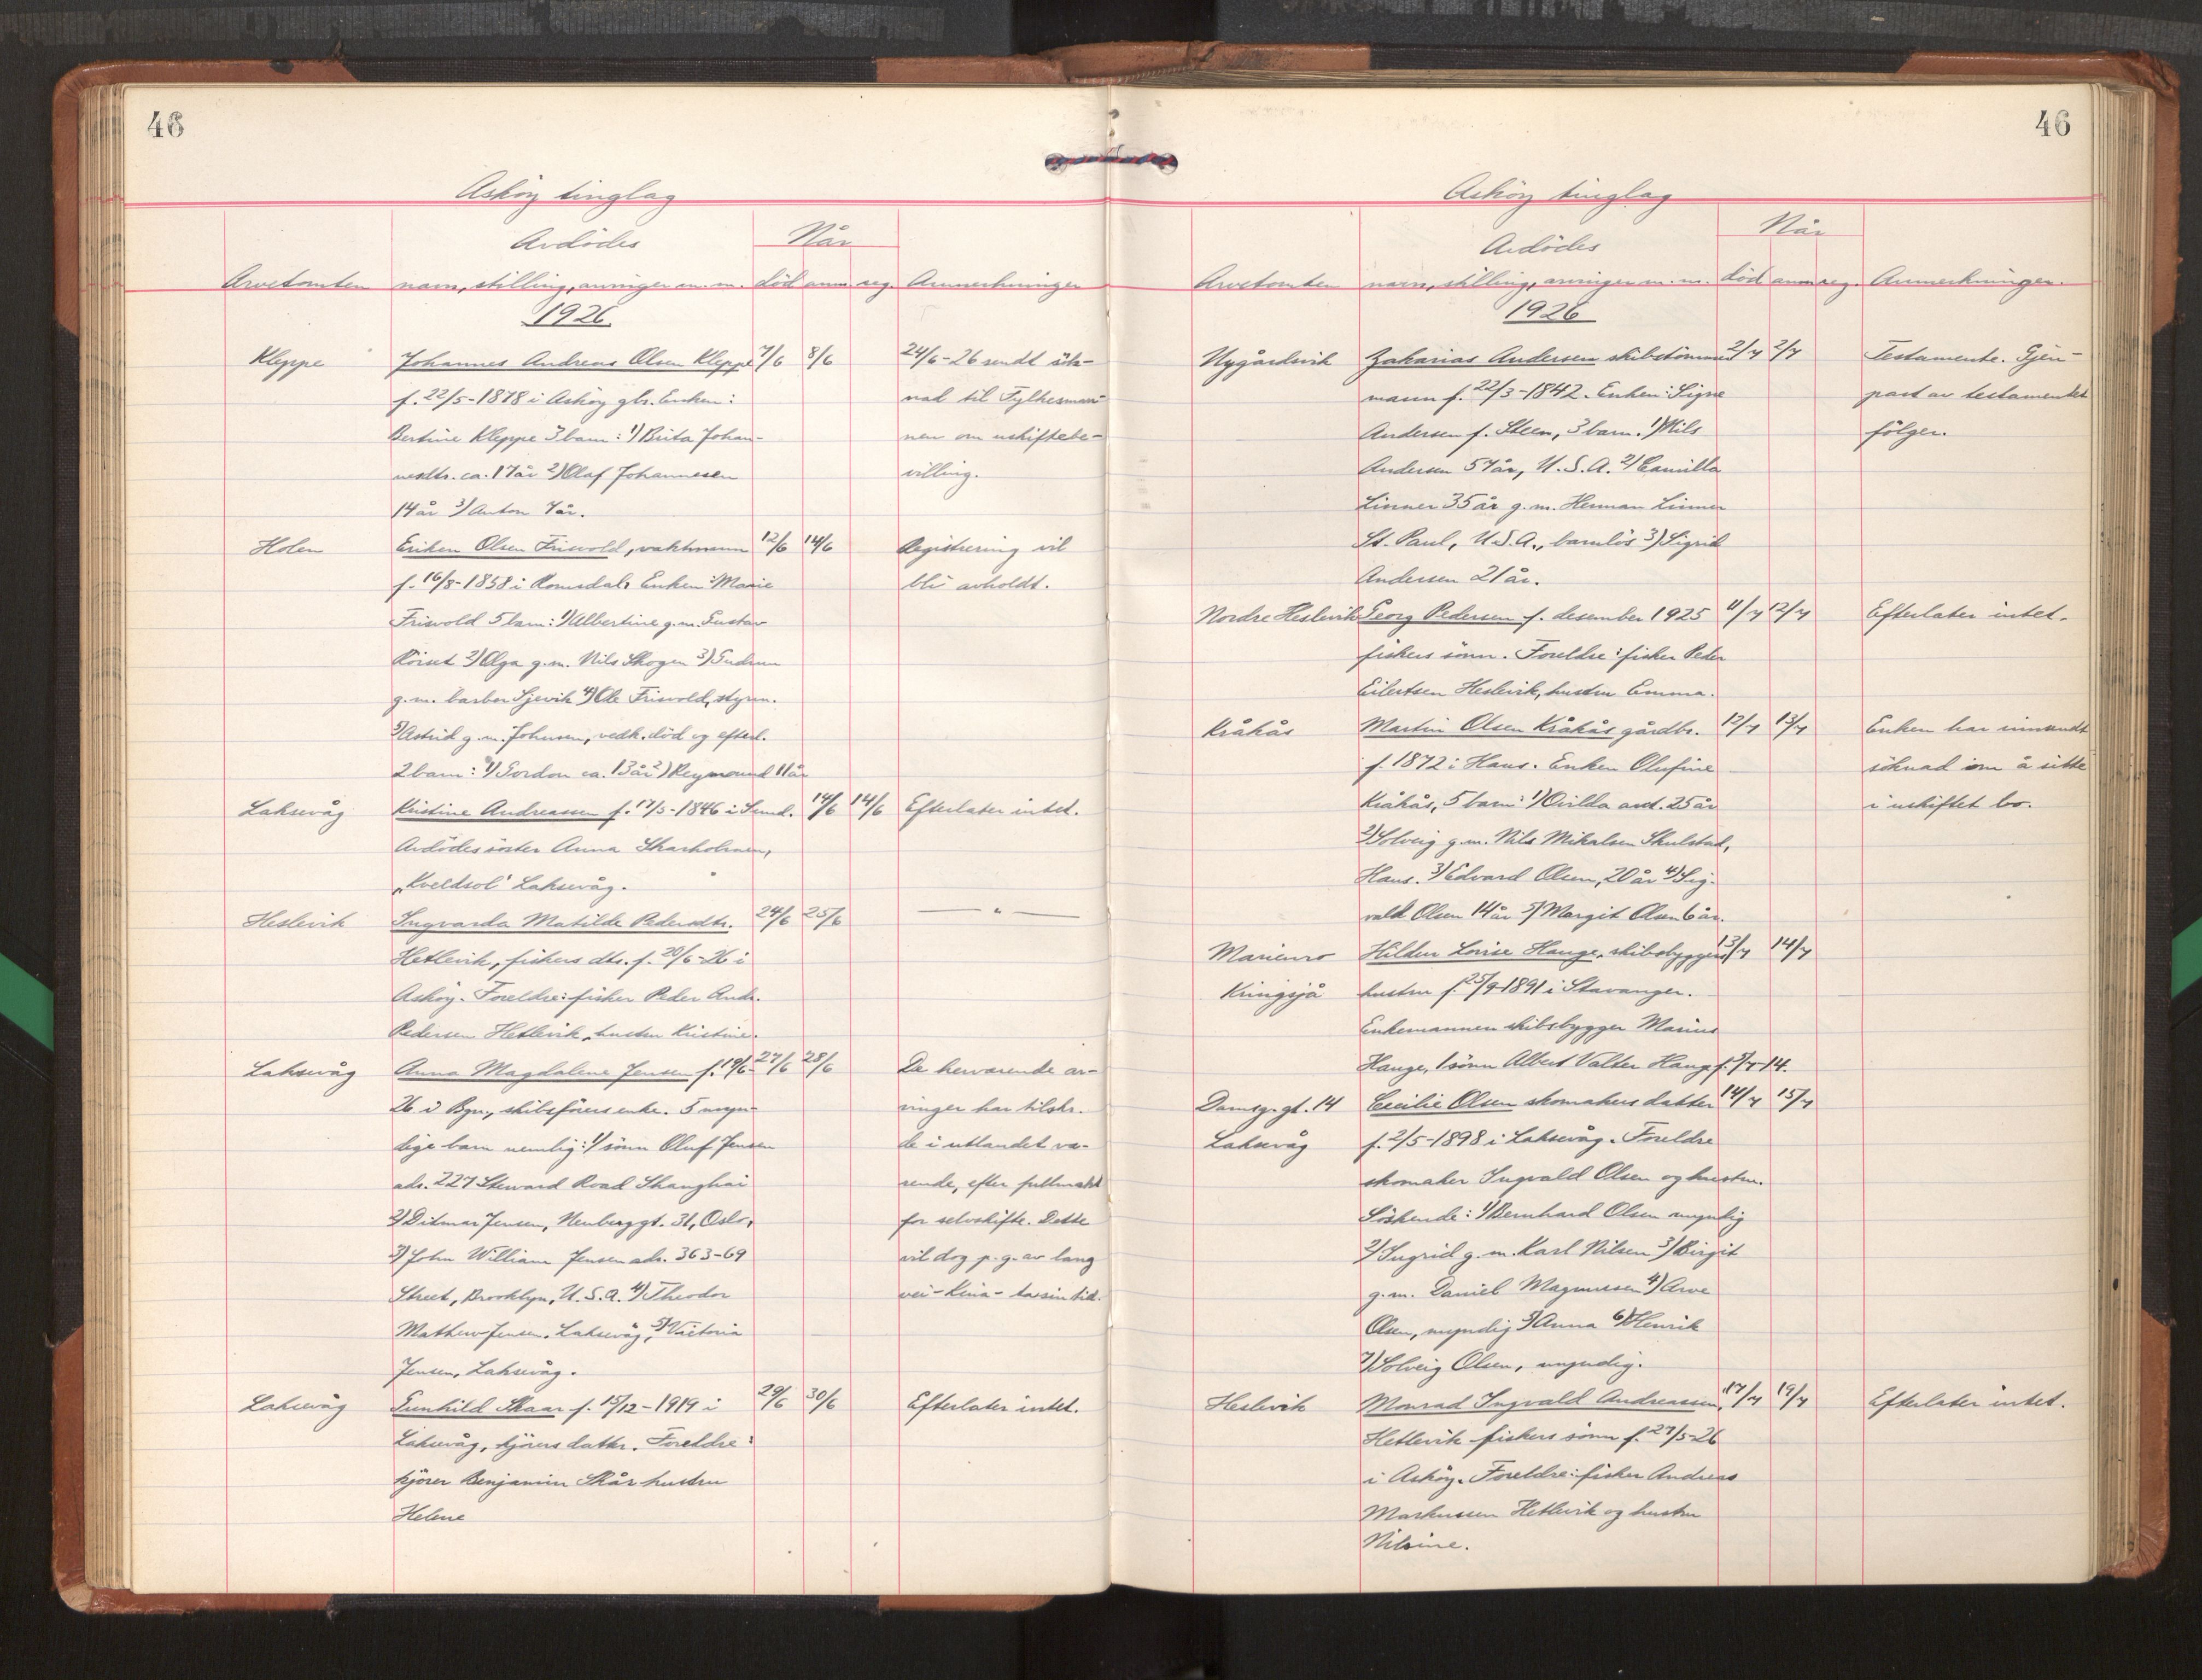 46
Askøy tinglag
Avdødes
Når
Arvetomten navn, stilling, arvinger m. m. død anm. reg. Anmerkninger
1926
Kleppe Johannes Andreas Olsen Kleppe 7/6 8/6 24/6-26 sendt søk-
f. 22/5-1878 i Askøy gbr. Enken: nad til Fylkesman-
Bertine Kleppe 3 barn: 1) Brita Johan- nen om uskiftebe-
nesdtr. ca. 17 år 2) Olaf Johannesen villing.
14 år 3) Anton 7 år.
Holen Eriken Olsen Frisvold, vaktmann 12/6 14/6 Registrering vil
f. 16/8-1858 i Romsdal. Enken: Marie bli avholdt.
Frisvold 5 barn: 1) Albertine g.m. Gustav
2) Olga g.m. Nils Skogen 3) Gudrun
g.m. barber Gjevik 4) Ole Frisvold, styrm.
5) Astrid g.m. Johnsen, vedk. død og efterl.
2 barn: 1) Gordon ca. 13 år 2) Reymound 11 år
Laksevåg Kristine Andreassen f. 17/3-1846 i Sund. 14/6 14/6 Efterlater intet.
Avdødes søster Anna Skarholmen,
„Kveldsol" Laksevåg.
Heslevik Ingvarda Matilde Pedersdtr. 24/6 25/6 — " —
Hetlevik, fiskers dtr. f. 20/6-26 i
Askøy. Foreldre: fisker Peder Andr.
Pedersen Hetlevik, hustru Kristine.
Laksevåg Anna Magdalene Jensen f. 19/6- 27/6 28/6 De herværende ar-
26 i Bgn., skibsførers enke. 5 myn- vinger har tilskr.
dige barn nemlig: 1) sønn Oluf Jensen de i utlandet væ-
adr. 227 Steward Road Shanghai rende, efter fullmakt
2) Ditmar Jensen, Neuberggt. 31, Oslo, for selvskifte. Dette
3) John William Jensen adr. 363-69 vil dog p.g.av lang
Street, Brooklyn, U.S.A. 4) Theodor vei - Kina - ta sin tid.
Mathew Jensen, Laksevåg, 5) Victoria
Jensen, Laksevåg.
Laksevåg Gunhild Skaar f. 15/12-1919 i 29/6 30/6 Efterlater intet.
Laksevåg, kjørers datter. Foreldre:
kjører Benjamin Skår hustru
Helene
46
Askøy tinglag
Avdødes
Når
Arvetomten navn, stilling, arvinger m. m. død anm reg. Anmerkninger.
1926
Nygårdsvik Zakarias Andersen skibstømmer- 2/7 2/7 Testamente. Gjen-
mann f. 22/3-1842. Enken: Signe part av testamentet
Andersen f. Steen, 3 barn. 1) Nils følger.
Andersen 57 år, U.S.A. 2) Camilla
Linner 35 år g.m. Herman Linner
St. Paul, U.S.A., barnløs 3) Sigrid
Andersen 21 år.
Nordre Heslevik Georg Pedersen f. desember 1925 11/7 12/7 Efterlater intet.
fiskers sønn. Foreldre: fisker Peder
Eilertsen Heslevik, hustru Emma.
Kråkås Martin Olsen Kråkås gårdbr. 12/7 13/7 Enken har innsendt
f. 1872 i Haus. Enken Olufine søknad om å sitte
Kråkås, 5 barn: 1) anst. 25 år i uskiftet bo.
2) Solveig g.m. Nils Mikalsen Skulstad,
Haus. 3) Edvard Olsen, 20 år 4) Sig-
vald Olsen 14 år 5) Margit Olsen 6 år.
Marienro Hildur Lovise Hauge, skibsbyggers 13/7 14/7
Kringsjå hustru f. 25/9-1891 i Stavanger.
Enkemannen skibsbygger Marius
Hauge, 1 sønn Albert Valter Hauge f. 5/7-14.
Damsg.gt. 14 Cecilie Olsen skomakers datter 14/7 15/7
Laksevåg f. 2/5-1898 i Laksevåg. Foreldre
skomaker Ingvald Olsen og hustru.
Søskende: 1) Bernhard Olsen myndig
2) Ingrid g.m. Karl Nilsen 3) Birgit
g.m. Daniel Magnussen 4) Arve
Olsen, myndig 5) Anna 6) Henrik
7) Solveig Olsen, umyndig.
Heslevik Monrad Ingvald Andreassen, 17/7 19/7 Efterlater intet.
Hetlevik fiskers sønn f. 27/5-26
i Askøy. Foreldre: fisker Andreas
Markussen Hetlevik og hustru
Nilsine.